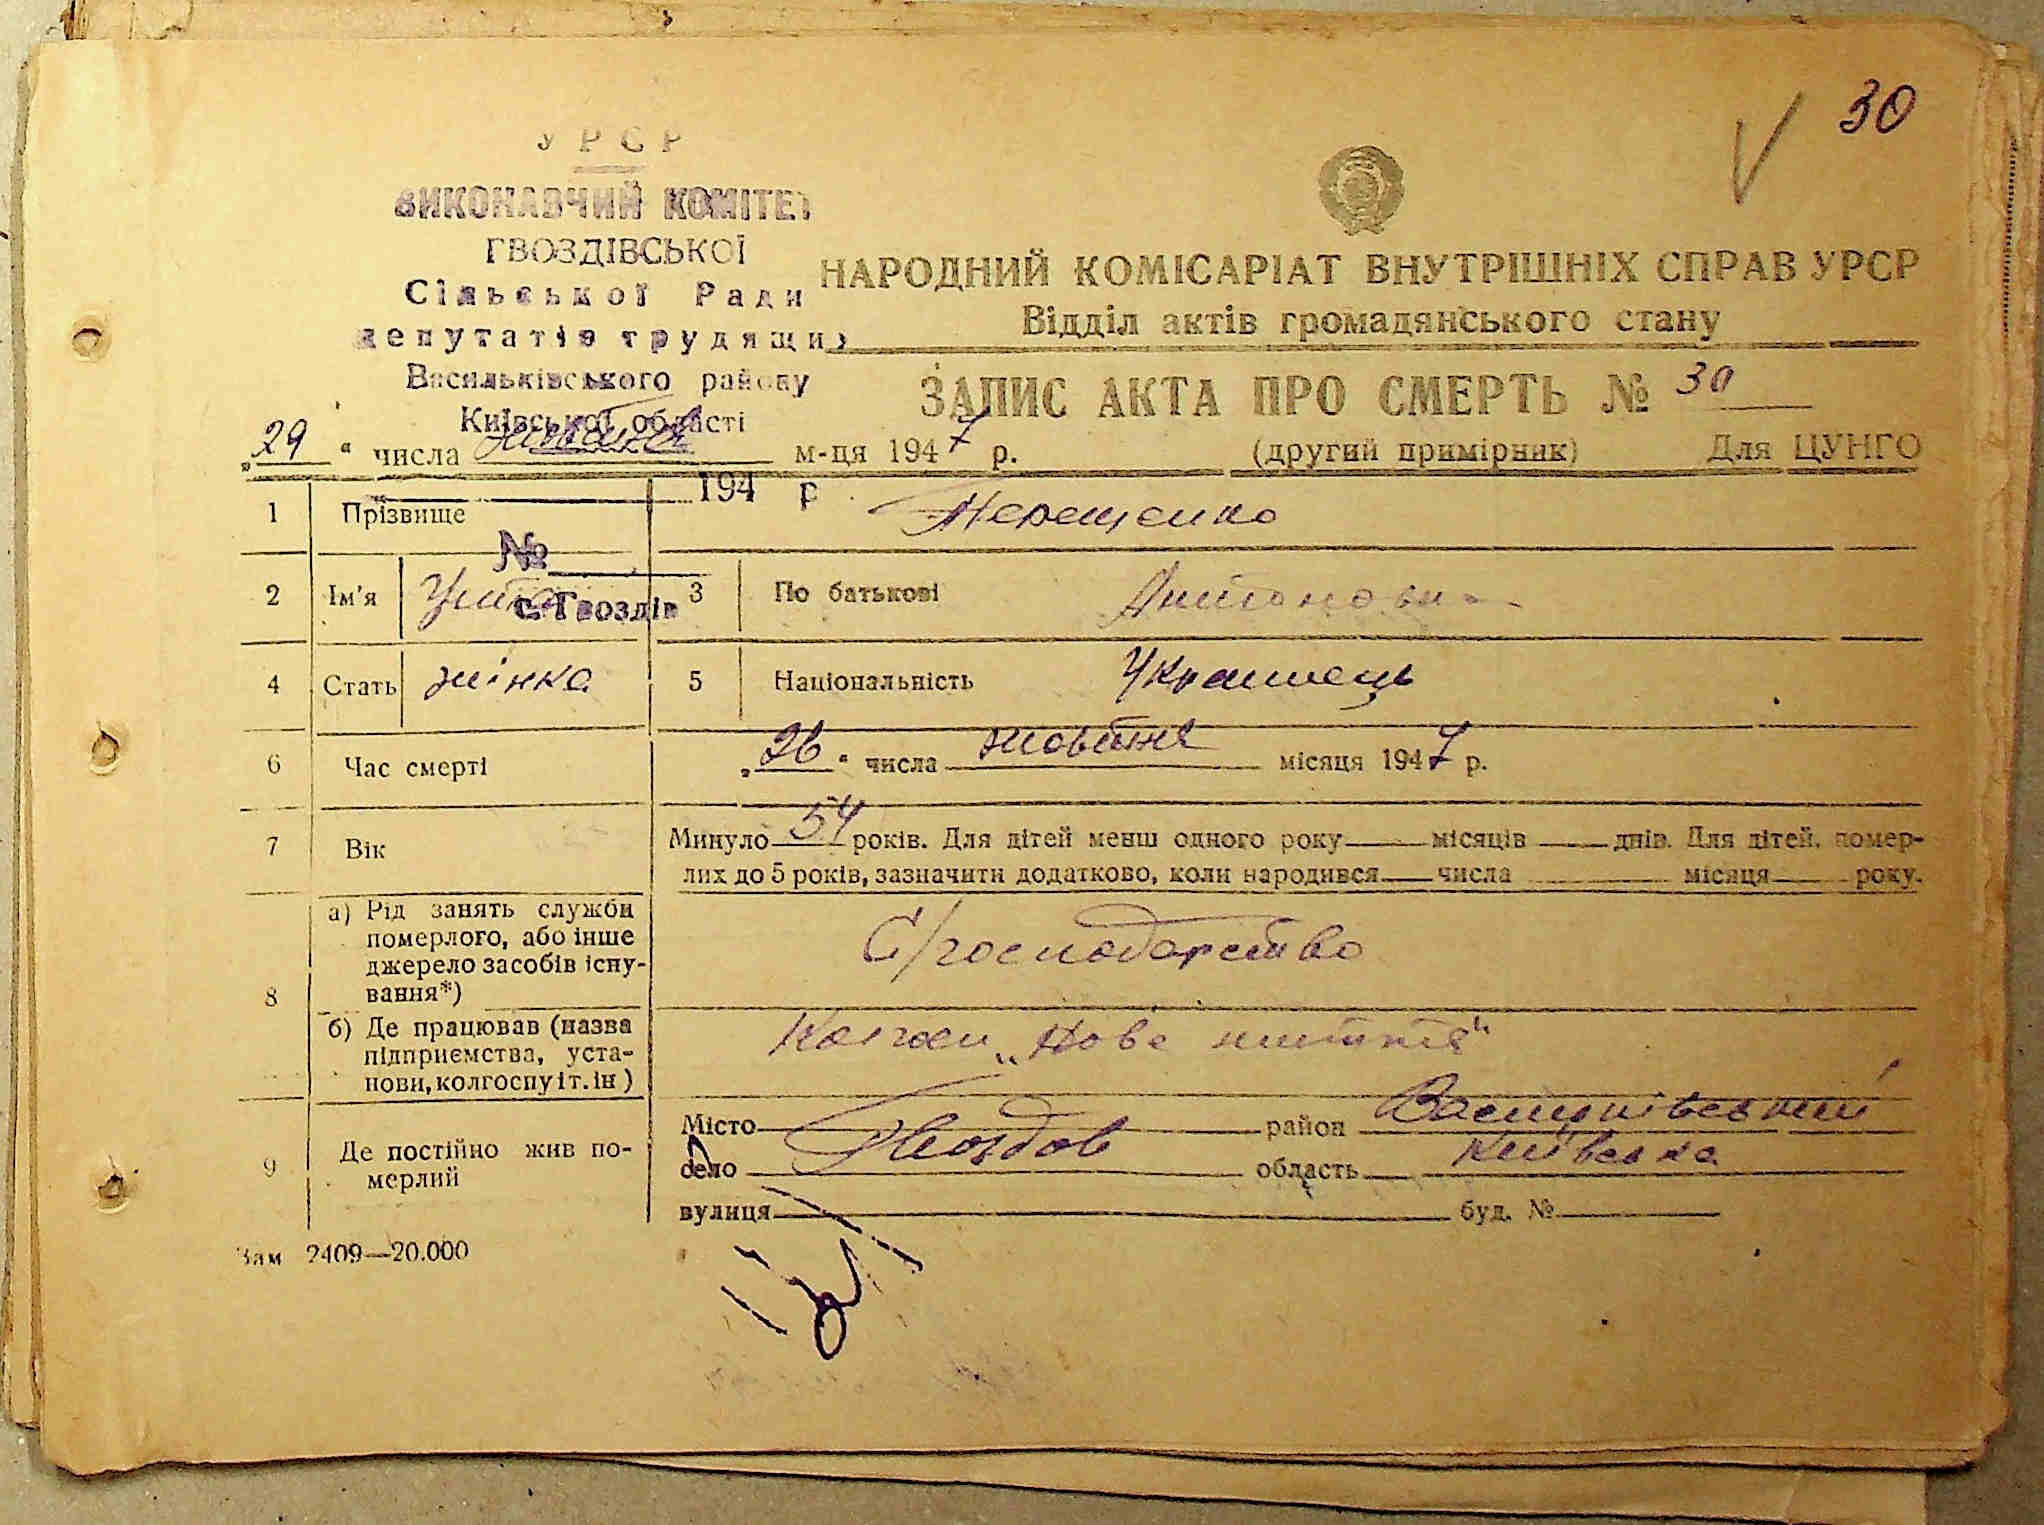 30
УРСР
ВИКОНАВЧИЙ КОМІТЕТ
ГВОЗДІВСЬКОЇ
Сільської Ради
депутатів трудящих
Васильківського району
Київської області
194 р.
№
с. Гвоздів
НАРОДНИЙ КОМІСАРІАТ ВНУТРІШНІХ СПРАВ УРСР
Відділ актів громадянського стану
ЗАПИС АКТА ПРО СМЕРТЬ № 30
„29“ числа жовтня м-ця 1947 р. (другий примірник) Для ЦУНГО
1 Прізвище Терещенко
2 Ім'я 3 По батькові
4 Стать жінка 5 Національність Українець
6 Час смерті „26“ числа жовтня місяця 1947 р.
7 Вік Минуло 54 років. Для дітей менш одного року місяців днів. Для дітей, помер-
лих до 5 років, зазначити додатково, коли народився числа місяця року.
8 а) Рід занять служби
померлого, або інше
джерело засобів існу-
вання*)
С/господарство
б) Де працював (назва
підприємства, уста-
нови, колгоспу і т. ін)
Колгосп „Нове життя"
9 Де постійно жив по-
мерлий
Місто район Васильківський
село Гвоздов область Київська
вулиця буд. №
Зам 2409—20.000